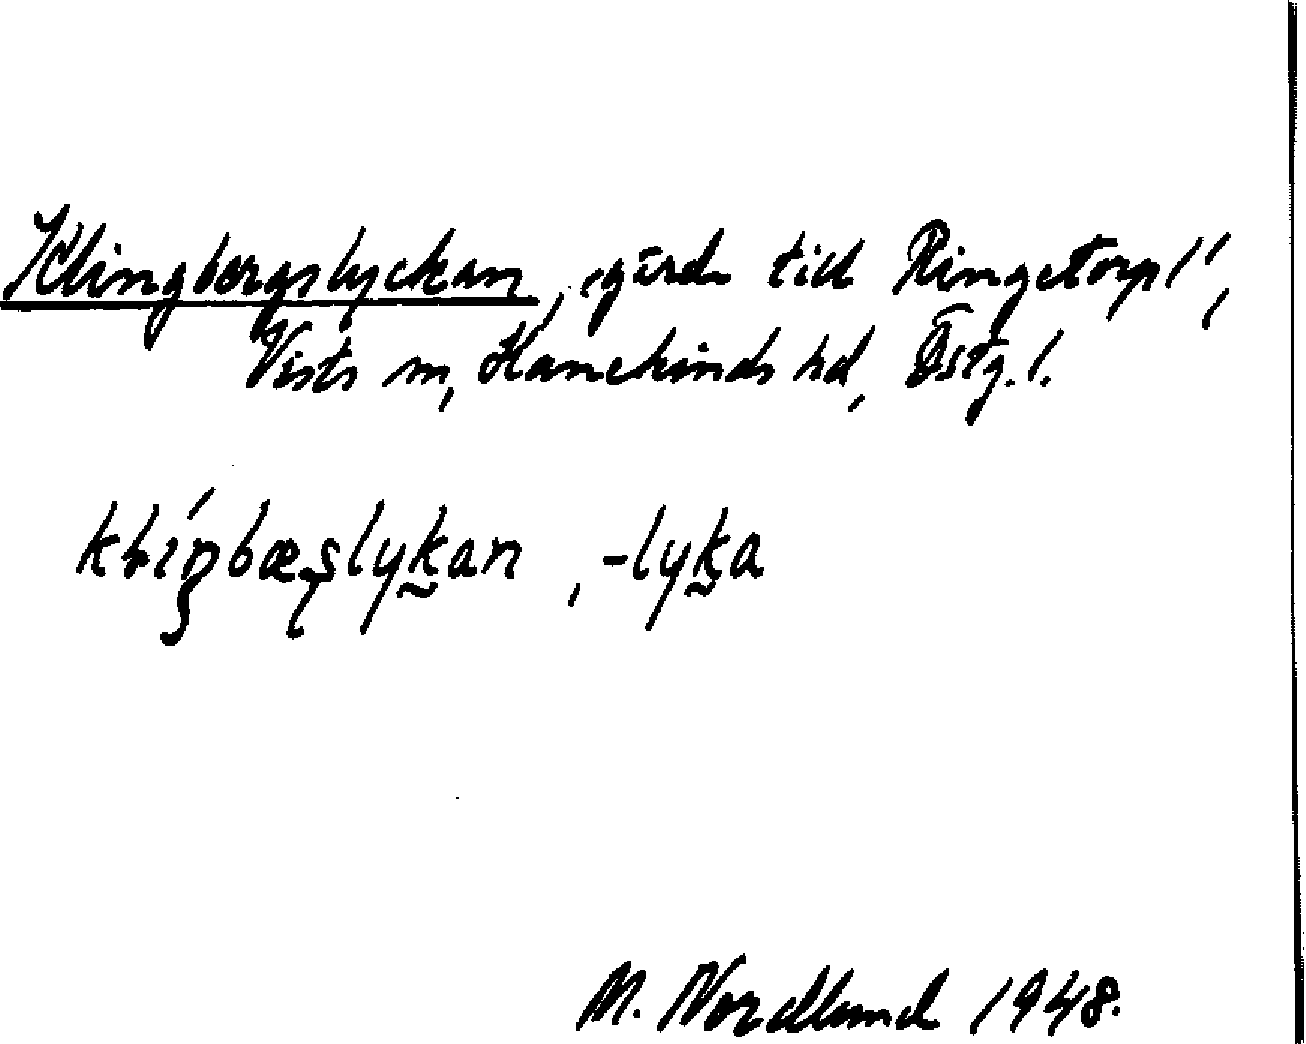 Klingbergslyckan, gärde till Ringetorp 1¹,
Vists sn, Hanekinds hd, Östg. l.
kƚíŋbæşlyk̰an, -lyk̰a
M. Nordlund 1948.